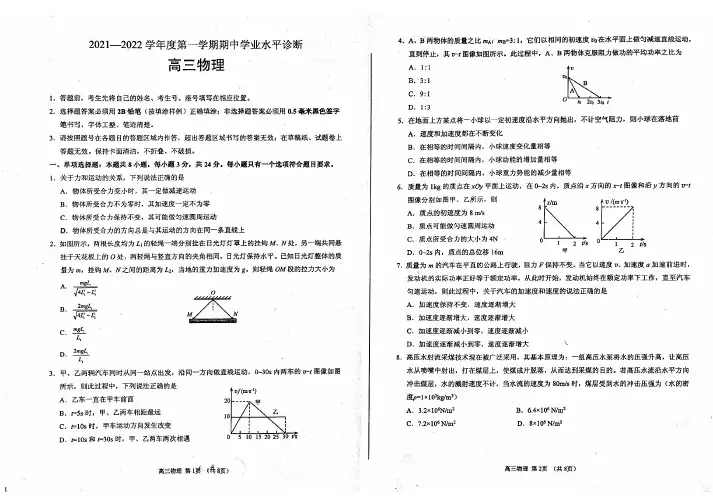 2021—2022 学年度第一学期期中学业水平诊断
高三物理
1. 答题前，考生先将自己的姓名、考生号、座号填写在相应位置。
2. 选择题答案必须用 2B 铅笔（按填涂样例）正确填涂；非选择题答案必须用 0.5 毫米黑色签字
笔书写，字体工整、笔迹清楚。
3. 请按照题号在各题目的答题区域内作答，超出答题区域书写的答案无效；在草稿纸、试题卷上
答题无效。保持卡面清洁，不折叠、不破损。
一、单项选择题：本题共 8 小题，每小题 3 分，共 24 分。每小题只有一个选项符合题目要求。
1. 关于力和运动的关系，下列说法正确的是
A. 物体所受合力变小时，其一定做减速运动
B. 物体所受合力不为零时，其加速度一定不为零
C. 物体所受合力保持不变，其可能做匀速圆周运动
D. 物体所受合力的方向总是与其运动的方向在同一条直线上
2. 如图所示，两根长度均为 L₁ 的轻绳一端分别拴在日光灯灯罩上的挂钩 M、N 处，另一端共同悬
挂于天花板上的 O 处，两轻绳与竖直方向的夹角相同，日光灯保持水平。已知日光灯整体的质
量为 m，挂钩 M、N 之间的距离为 L₂，当地的重力加速度为 g，则轻绳 OM 段的拉力大小为
A. mgL₁/√(4L₁²−L₂²)
B. 2mgL₁/√(4L₁²−L₂²)
C. mgL₁/L₂
D. 2mgL₁/L₂
O
M N
3. 甲、乙两辆汽车同时从同一站点出发，沿同一方向做直线运动，0~30s 内两车的 v-t 图像如图
所示，则此过程中，下列说法正确的是
A. 乙车一直在甲车前面
B. t=5s 时，甲、乙两车相距最远
C. t=10s 时，甲车运动方向发生改变
D. t=10s 和 t=30s 时，甲、乙两车两次相遇
v/(m·s⁻¹)
20
甲
10
乙
0 5 10 15 20 25 30 t/s
高三物理 第1页 （共8页）
4. A、B 两物体的质量之比 mA：mB=3:1，它们以相同的初速度 v₀ 在水平面上做匀减速直线运动，
直到停止，其 v-t 图像如图所示。此过程中，A、B 两物体克服阻力做功的平均功率之比为
A. 1:1
B. 3:1
C. 9:1
D. 1:3
v
v₀
A B
O t₀ 2t₀ 3t₀ t
5. 在地面上方某点将一小球以一定初速度沿水平方向抛出，不计空气阻力，则小球在落地前
A. 速度和加速度都在不断变化
B. 在相等的时间间隔内，小球速度变化量相等
C. 在相等的时间间隔内，小球动能的增加量相等
D. 在相等的时间间隔内，小球重力势能的减少量相等
6. 质量为 1kg 的质点在 xOy 平面上运动，在 0~2s 内，质点沿 x 方向的 x-t 图像和沿 y 方向的 v-t
图像分别如图甲、乙所示，则
A. 质点的初速度为 8 m/s
B. 质点可能做匀速圆周运动
C. 质点所受合力的大小为 4N
D. 0~2s 内，质点的总位移 16m
x/m
8
4
0 1 2 t/s
甲
v/(m·s⁻¹)
8
4
0 1 2 t/s
乙
7. 质量为 m 的汽车在平直的公路上行驶，阻力 F 保持不变。当它以速度 v、加速度 a 加速前进时，
发动机的实际功率正好等于额定功率，从此时开始，发动机始终在额定功率下工作，直至汽车
匀速运动。则此过程中，关于汽车的加速度和速度的说法正确的是
A. 加速度保持不变，速度逐渐增大
B. 加速度逐渐增大，速度逐渐增大
C. 加速度逐渐减小到零，速度逐渐减小
D. 加速度逐渐减小到零，速度逐渐增大
8. 高压水射流采煤技术现在被广泛采用，其基本原理为：一组高压水泵将水的压强升高，让高压
水从喷嘴中射出，打在煤层上，使煤成片脱落，从而达到采煤的目的。若高压水流沿水平方向
冲击煤层，水的溅射速度不计，当水流的速度为 80m/s 时，煤层受到水的冲击压强为（水的密
度ρ=1×10³kg/m³）
A. 3.2×10⁶N/m²
B. 6.4×10⁶ N/m²
C. 7.2×10⁶ N/m²
D. 8×10⁶ N/m²
高三物理 第2页 （共8页）